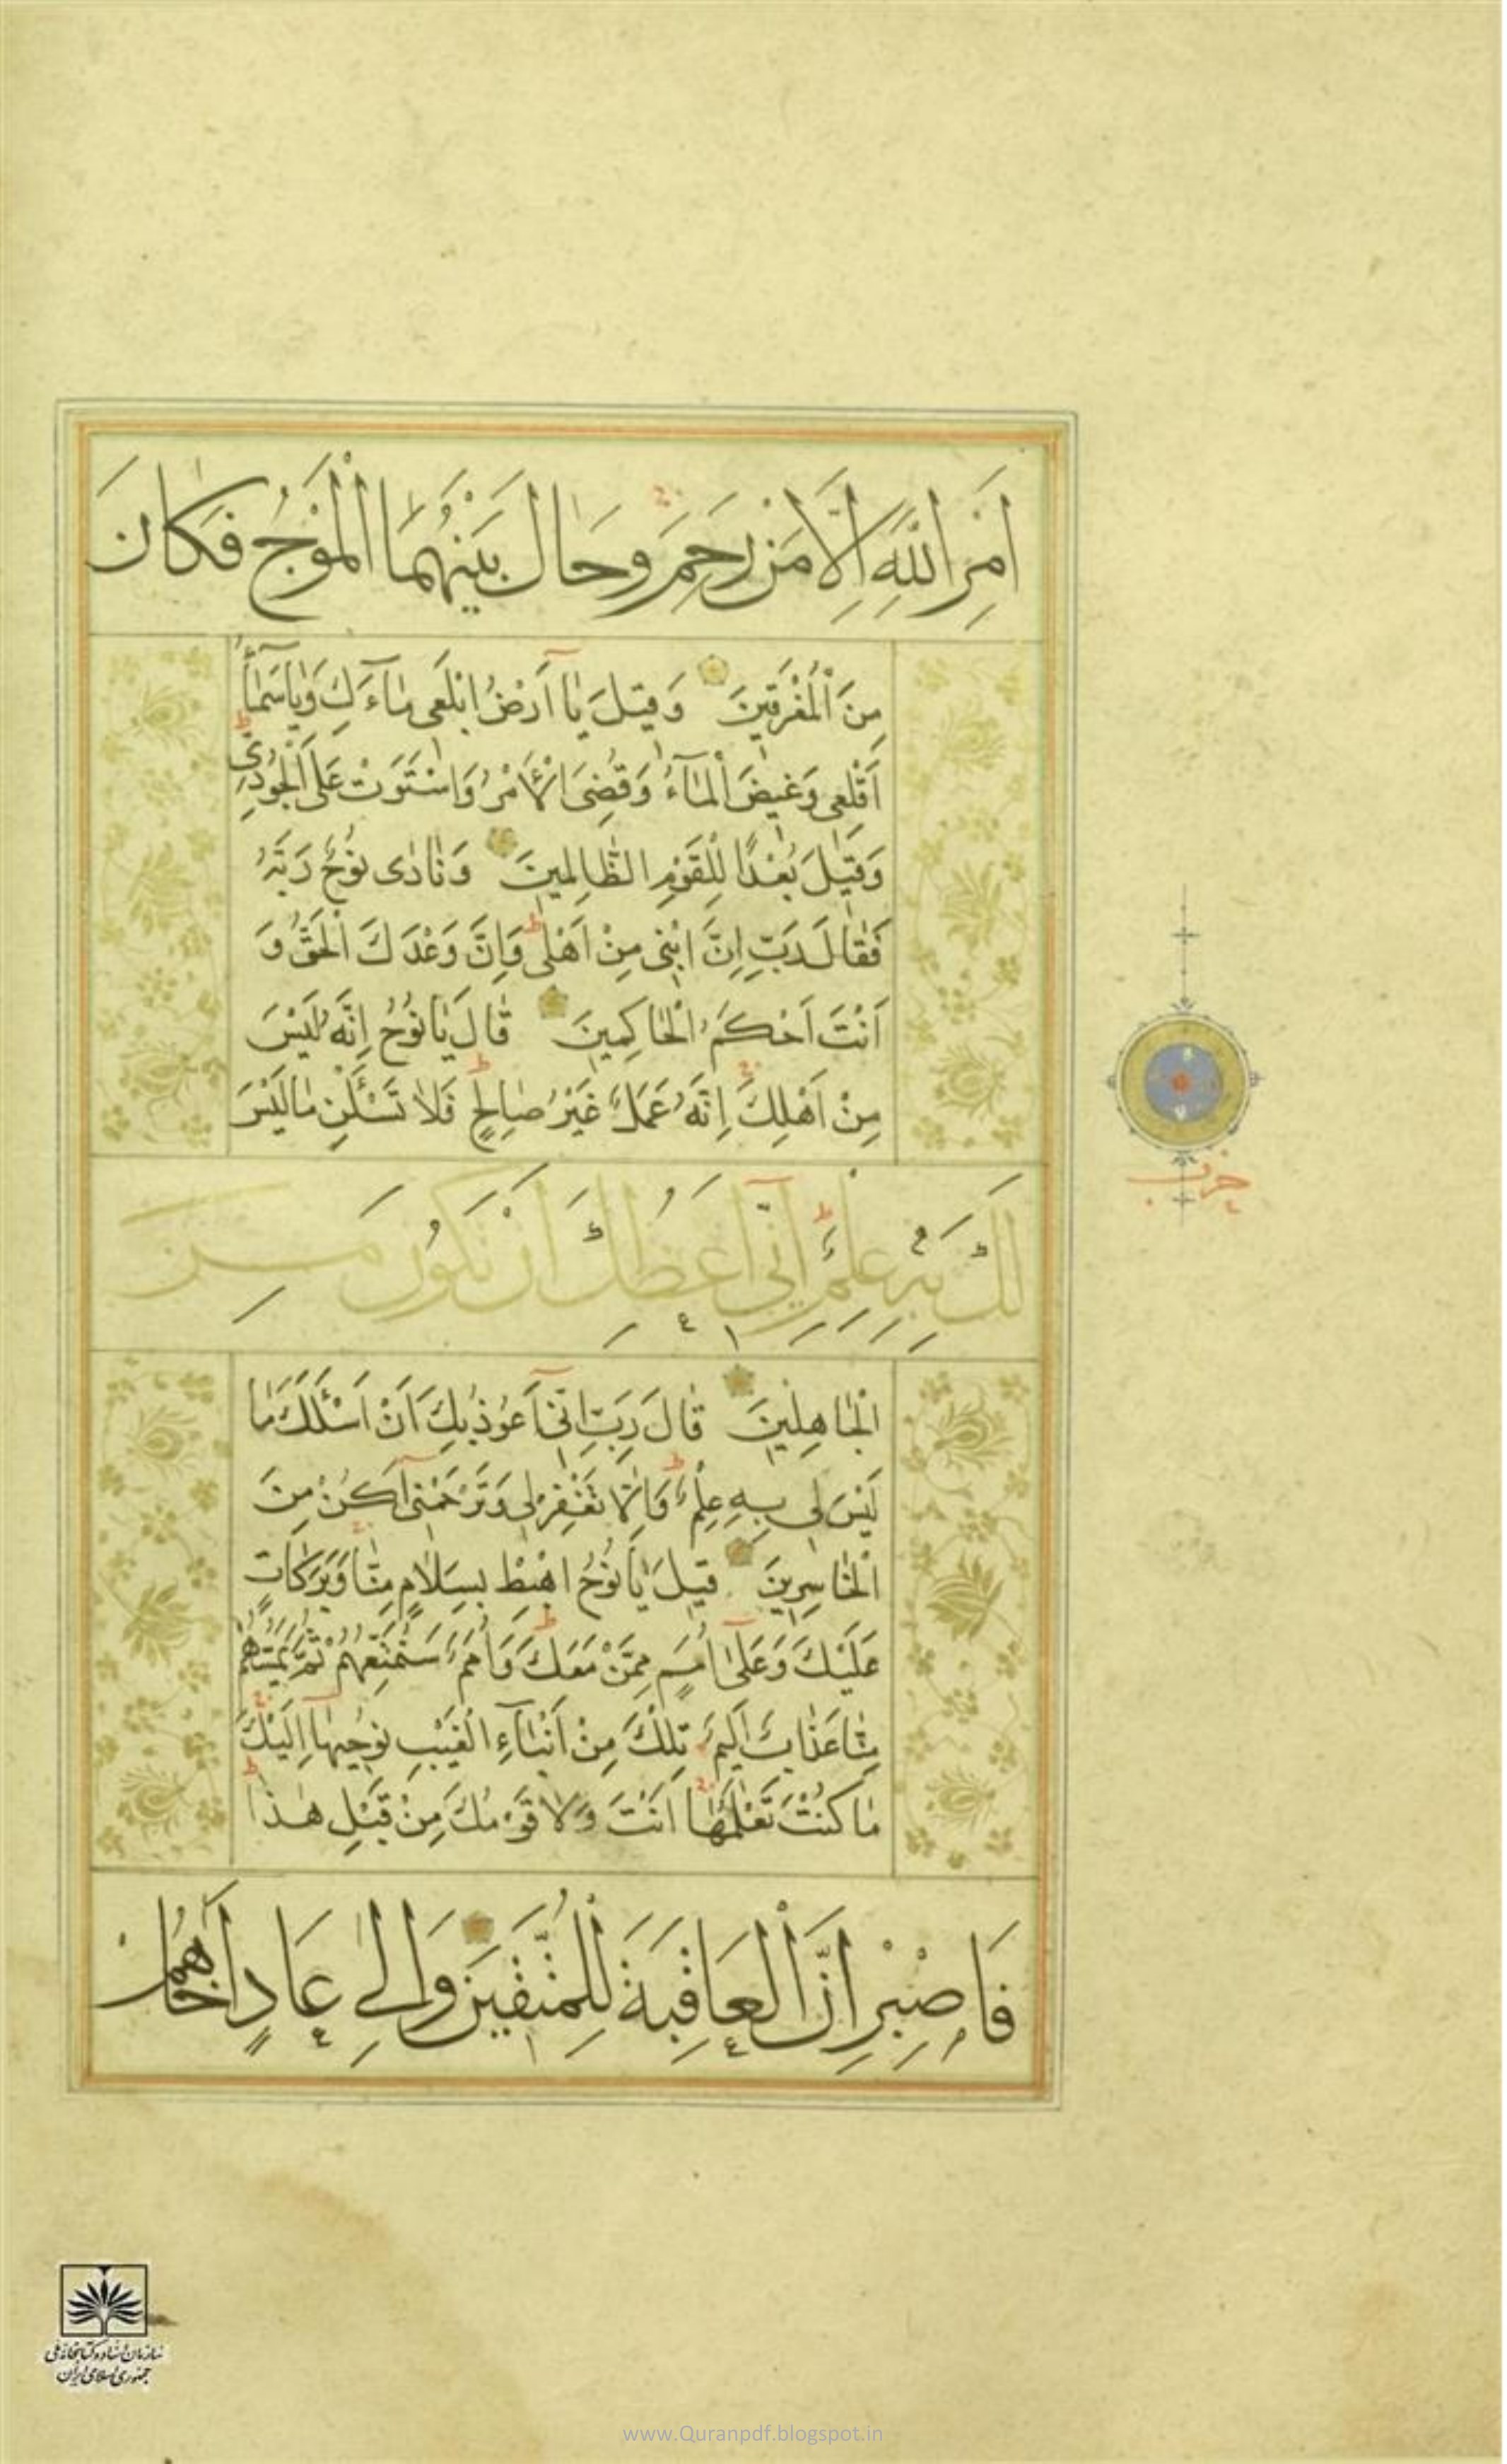 اَمْرِ اللّٰهِ اِلَّا مَنْ رَحِمَ وَحَالَ بَيْنَهُمَا الْمَوْجُ فَكَانَ
مِنَ الْمُغْرَقِينَ وَقِيلَ يَا اَرْضُ ابْلَعِى مَاءَكِ وَيَا سَمَاءُ
اَقْلِعِى وَغِيضَ الْمَاءُ وَقُضِىَ الْاَمْرُ وَاسْتَوَتْ عَلَى الْجُودِىِّ
وَقِيلَ بُعْدًا لِلْقَوْمِ الظَّالِمِينَ وَنَادٰى نُوحٌ رَبَّهُ
فَقَالَ رَبِّ اِنَّ ابْنِى مِنْ اَهْلِى وَاِنَّ وَعْدَكَ الْحَقُّ وَ
اَنْتَ اَحْكَمُ الْحَاكِمِينَ قَالَ يَا نُوحُ اِنَّهُ لَيْسَ
مِنْ اَهْلِكَ اِنَّهُ عَمَلٌ غَيْرُ صَالِحٍ فَلَا تَسْئَلْنِ مَا لَيْسَ
لَكَ بِهِ عِلْمٌ اِنِّى اَعِظُكَ اَنْ تَكُونَ مِنَ
الْجَاهِلِينَ قَالَ رَبِّ اِنِّى اَعُوذُ بِكَ اَنْ اَسْئَلَكَ مَا
لَيْسَ لِى بِهِ عِلْمٌ وَاِلَّا تَغْفِرْ لِى وَتَرْحَمْنِى اَكُنْ مِنَ
الْخَاسِرِينَ قِيلَ يَا نُوحُ اهْبِطْ بِسَلَامٍ مِنَّا وَبَرَكَاتٍ
عَلَيْكَ وَعَلٰى اُمَمٍ مِمَّنْ مَعَكَ وَاُمَمٌ سَنُمَتِّعُهُمْ ثُمَّ يَمَسُّهُمْ
مِنَّا عَذَابٌ اَلِيمٌ تِلْكَ مِنْ اَنْبَاءِ الْغَيْبِ نُوحِيهَا اِلَيْكَ
مَا كُنْتَ تَعْلَمُهَا اَنْتَ وَلَا قَوْمُكَ مِنْ قَبْلِ هٰذَا
فَاصْبِرْ اِنَّ الْعَاقِبَةَ لِلْمُتَّقِينَ وَاِلٰى عَادٍ اَخَاهُمْ
حزب
سازمان اسناد و کتابخانه ملی
جمهوری اسلامی ایران
www.Quranpdf.blogspot.in